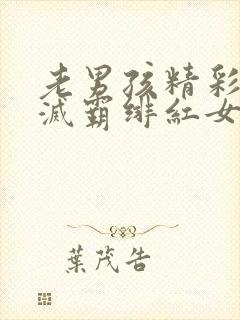 老男孩精彩
滅霸緋紅女
葉茂告